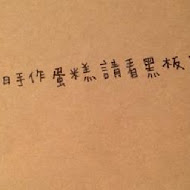 日手作蛋糕請看黑板